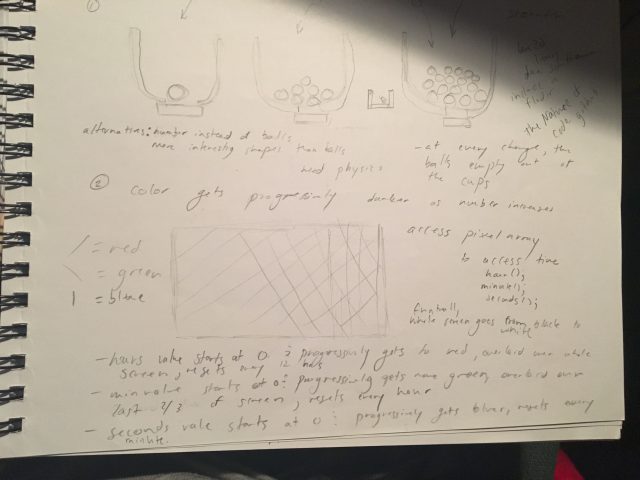 ①
alternatives: number instead of balls
more interesting shapes than balls
need physics
- at every change, the
balls empty out of
the cups
the Nature of
code github
② color gets progressively darker as number increases
/ = red
\ = green
| = blue
access pixel array
to access time
hour();
minute();
seconds();
Eventually,
whole screen goes from black to
white
- hours value starts at 0 & progressively gets to red, overlaid over whole
screen, resets every 12 hours
- min value starts at 0 & progressively gets more green, overlaid over
last 2/3 of screen, resets every hour
- seconds value starts at 0 & progressively gets bluer, resets every
minute.